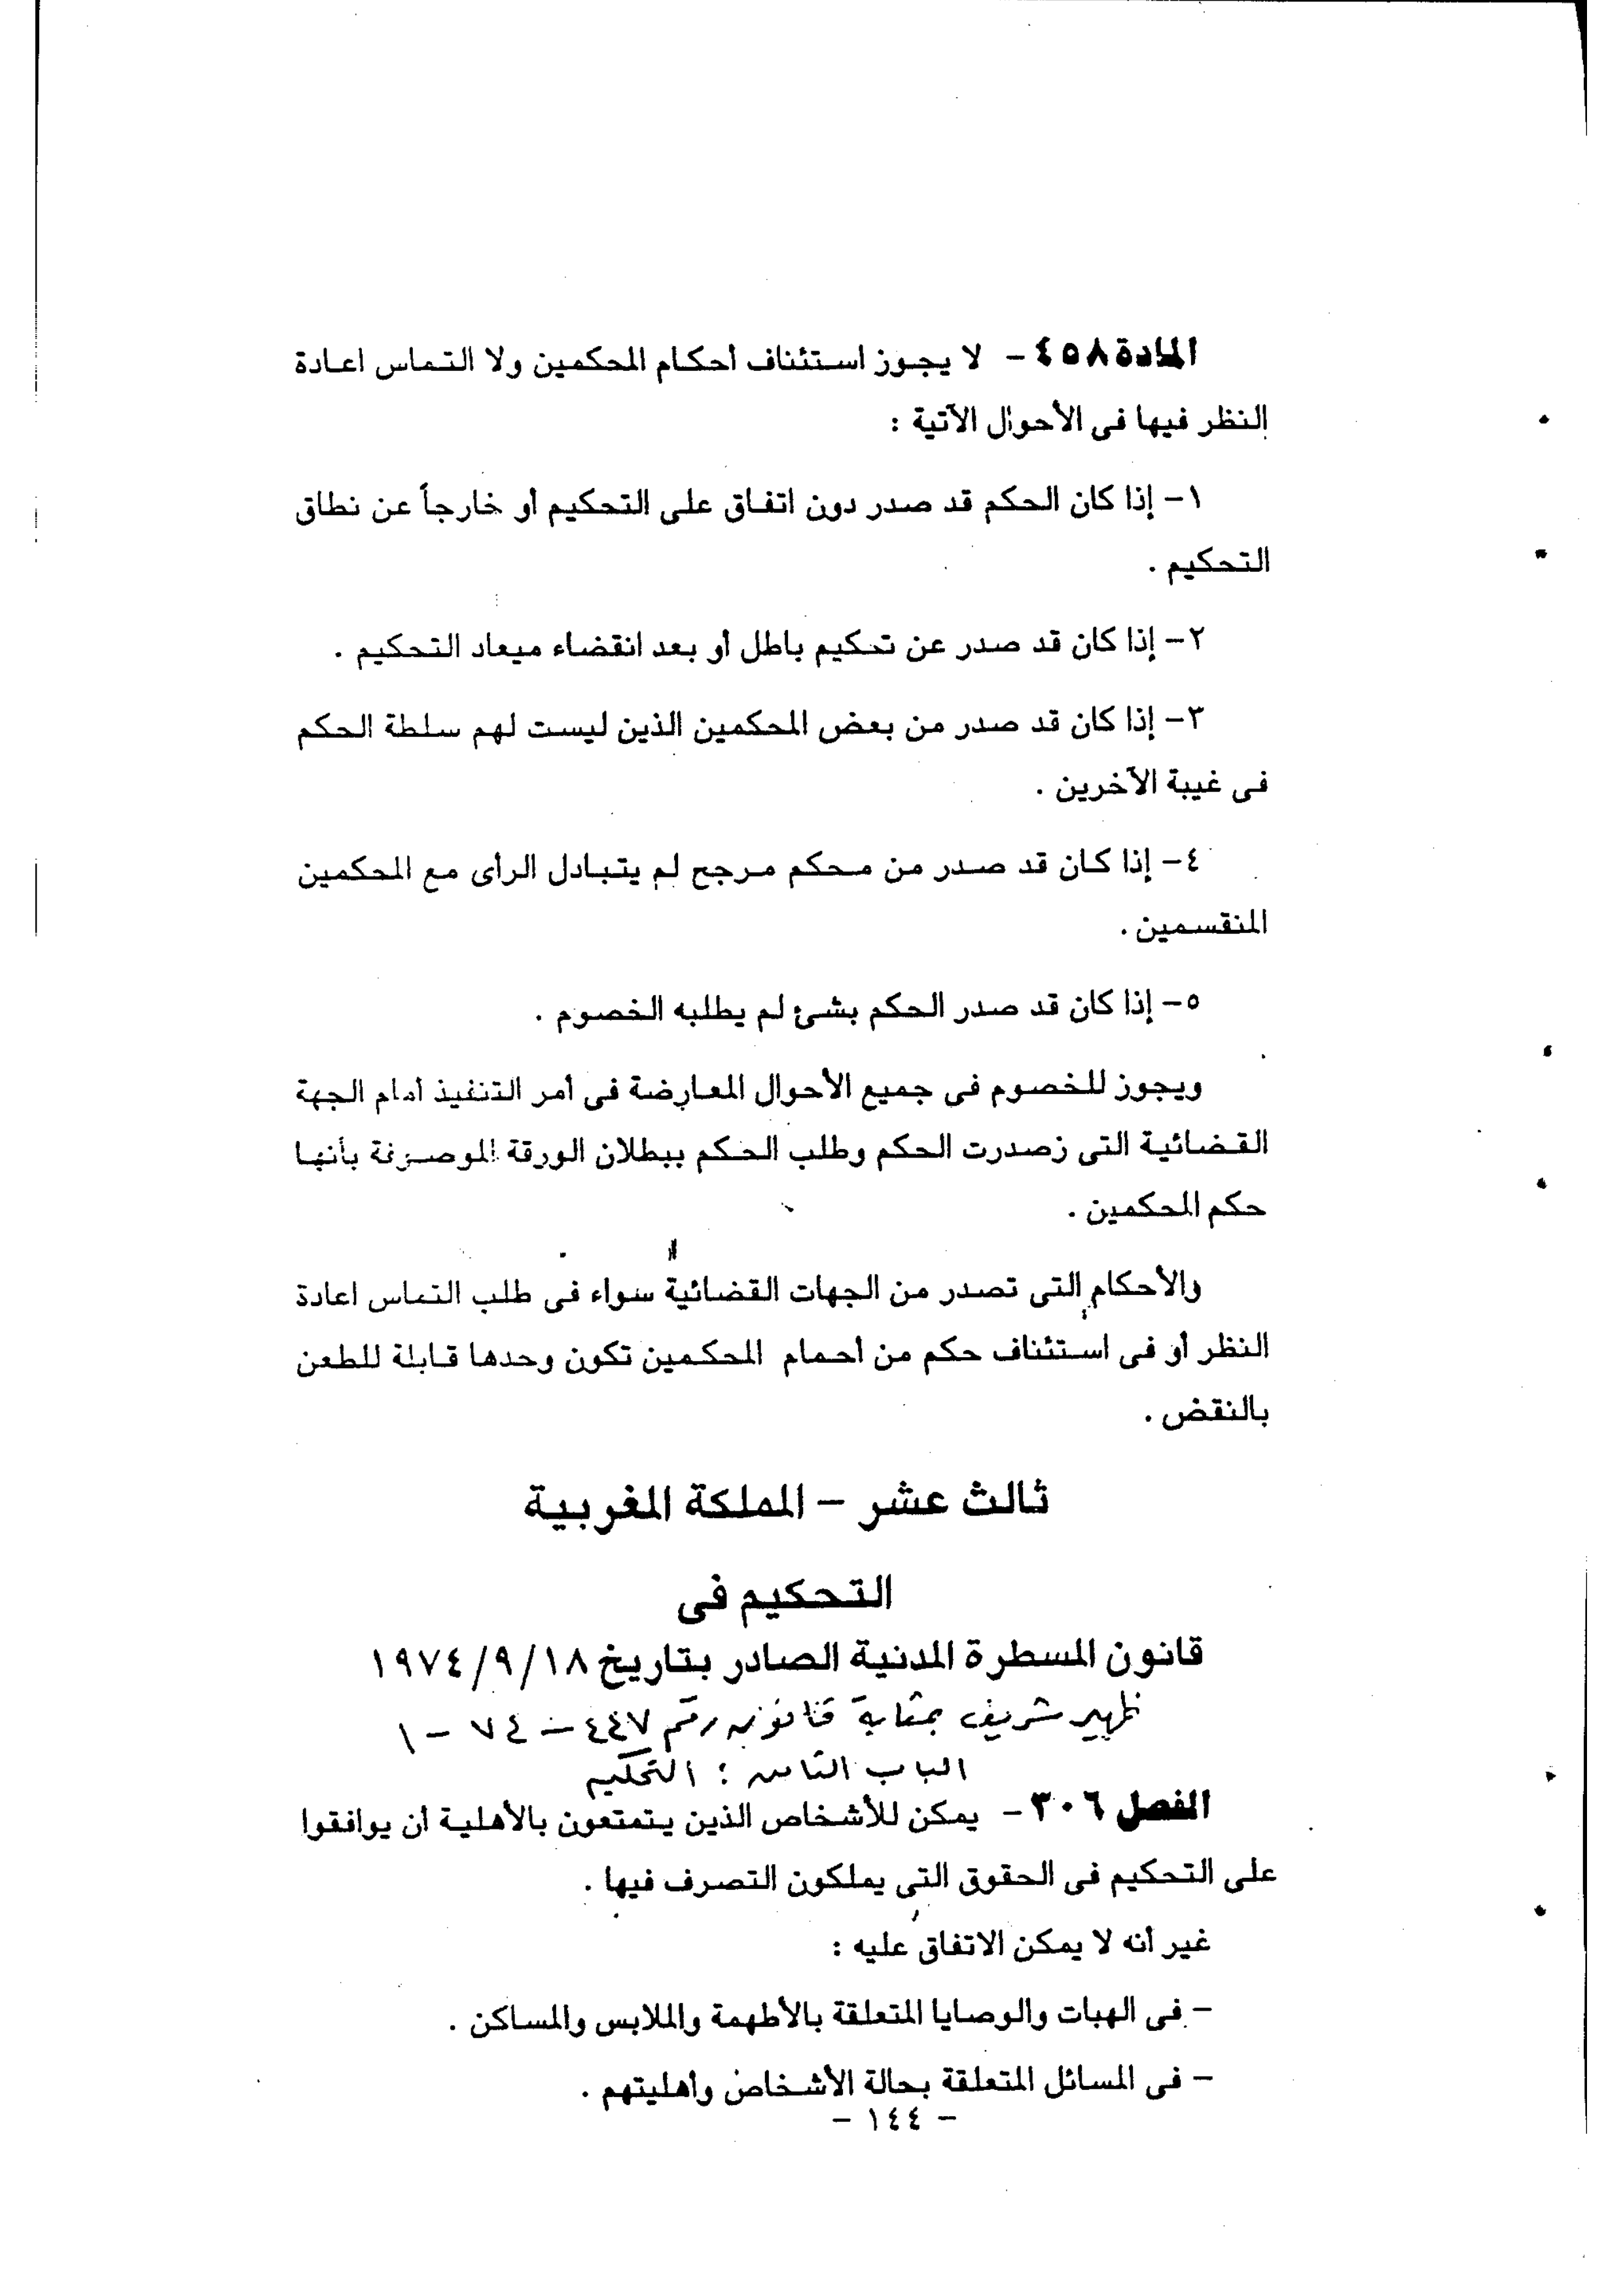 المادة ٤٥٨ - لا يجوز استئناف أحكام المحكمين ولا التماس اعادة
النظر فيها فى الأحوال الآتية :
١- إذا كان الحكم قد صدر دون اتفاق على التحكيم أو خارجاً عن نطاق
التحكيم .
٢- إذا كان قد صدر عن تحكيم باطل أو بعد انقضاء ميعاد التحكيم .
٣- إذا كان قد صدر من بعض المحكمين الذين ليست لهم سلطة الحكم
فى غيبة الآخرين .
٤- إذا كان قد صدر من محكم مرجح لم يتبادل الرأى مع المحكمين
المنقسمين .
٥- إذا كان قد صدر الحكم بشئ لم يطلبه الخصوم .
ويجوز للخصوم فى جميع الأحوال المعارضة فى أمر التنفيذ أمام الجهة
القضائية التى زصدرت الحكم وطلب الحكم ببطلان الورقة الموصوفة بأنها
حكم المحكمين .
والأحكام التى تصدر من الجهات القضائية سواء فى طلب التماس اعادة
النظر أو فى استئناف حكم من أحمام المحكمين تكون وحدها قابلة للطعن
بالنقض .
ثالث عشر – المملكة المغربية
التحكيم فى
قانون المسطرة المدنية الصادر بتاريخ ١٩٧٤/٩/١٨
ظهير شريف بمثابة قانون رقم ٤٤٧ – ٧٤ – ١
الباب الثامن : التحكيم
الفصل ٣٠٦ - يمكن للأشخاص الذين يتمتعون بالأهلية أن يوافقوا
على التحكيم فى الحقوق التى يملكون التصرف فيها .
غير أنه لا يمكن الاتفاق عليه :
- فى الهبات والوصايا المتعلقة بالأطهمة والملابس والمساكن .
- فى المسائل المتعلقة بحالة الأشخاص وأهليتهم .
- ١٤٤ -